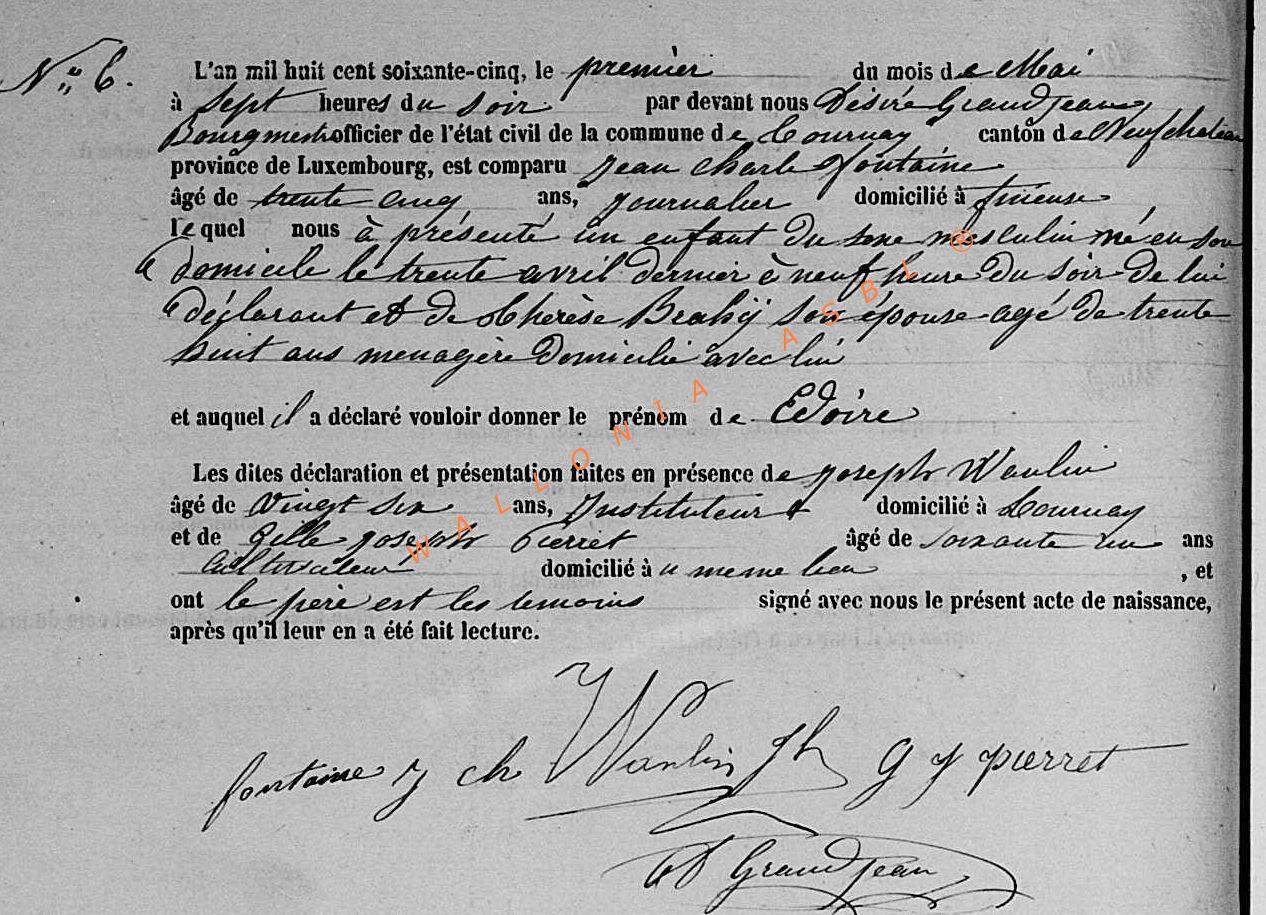 N° 6.
L'an mil huit cent soixante-cinq, le premier du mois de Mai
à sept heures du soir par devant nous Désiré Grandjean
Bourgmestre officier de l'état civil de la commune de Tournay canton de Neufchateau
province de Luxembourg, est comparu Jean Charle fontaine
âgé de trente cinq ans, journalier domicilié à
lequel nous à présenté un enfant du sexe masculin né en son
domicile le trente avril dernier à neuf heure du soir de lui
déclarant et de Thérèse Brahÿ son épouse agé de trente
huit ans menagère domicilié avec lui
et auquel il a déclaré vouloir donner le prénom de Edoire
Les dites déclaration et présentation faites en présence de joseph Wanlin
âgé de vingt six ans, Instituteur domicilié à Tournay
et de Gille joseph Pierret âgé de soixante un ans
Cultivateur domicilié à u meme lieu , et
ont le père est les temoins signé avec nous le présent acte de naissance,
après qu'il leur en a été fait lecture.
fontaine j ch Wanlin Jh g j pierret
D Grandjean
WALLONIA ASBL ®